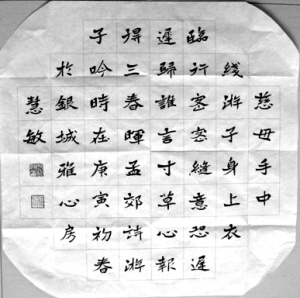 慈母手中
綫游子身上衣
臨行密密縫意恐遲
遲歸誰言寸草心報
得三春暉孟郊詩游
子吟時在庚寅初春
於銀城雅心房
慧敏